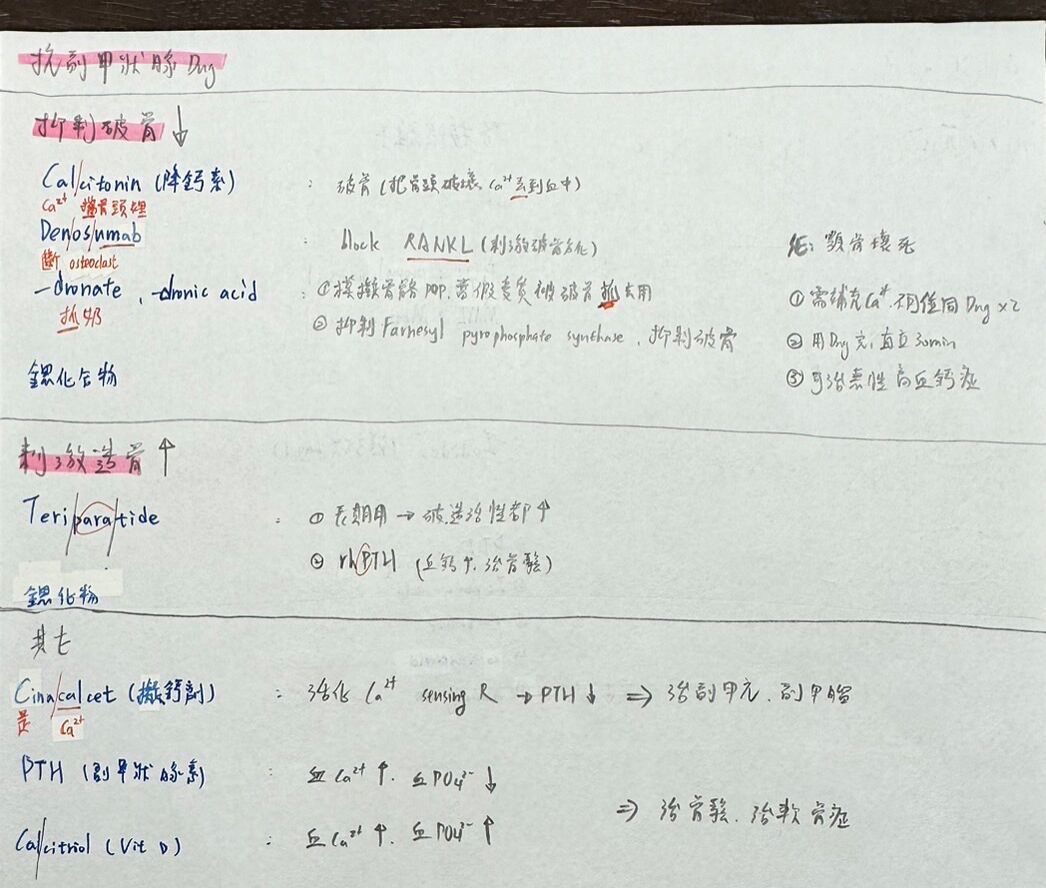 抗副甲狀腺Drug
抑制破骨↓
Calcitonin (降鈣素) : 破骨(把骨頭破壞, Ca²⁺丟到血中)
Ca²⁺ 擋骨頭裡
Denosumab : block RANKL (刺激破骨分化) 死: 顎骨壞死
斷 osteoclast
-dronate, -dronic acid : ① 模擬骨骼 POP, 當假受質被破骨抓去用 ① 需補充Ca²⁺, 不用值同Drug×2
抓 ② 抑制 Farnesyl pyrophosphate synthase, 抑制破骨 ② 用Drug完, 直立30min
鍶化合物 ③ 可治惡性高血鈣症
刺激造骨↑
Teriparatide : ① 長期用→破造活性都↑
② rhPTH (血鈣↑, 治骨鬆)
鍶化物
其它
Cinacalcet (擬鈣劑) : 活化 Ca²⁺ sensing R → PTH↓ ⇒ 治副甲亢, 副甲癌
是 Ca²⁺
PTH (副甲狀腺素) : 血Ca²⁺↑, 血PO₄³⁻↓
⇒ 治骨鬆, 治軟骨症
Calcitriol (Vit D) : 血Ca²⁺↑, 血PO₄³⁻↑